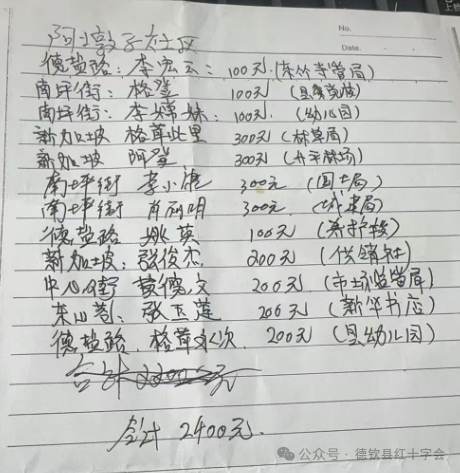 No.
Date.
阿墩子社区
德盐路：李宏云：100元（东竹寺管局）
南坪街：格登 100元（县
南坪街：李嫦妹：100元（幼儿园）
新加坡 格茸此里 300元（林草局）
新加坡 阿登 300元（升平林场）
南坪街 李小 300元（国土局）
南坪街 肖丽明 300元（城建局）
德盐路 姚英 100元（养护段）
新加坡：张俊杰 200元（供销社）
中心街 黄德文 200元（市场监管局）
东 张玉莲 200元（新华书店）
德盐路 格茸永次 200元（县幼儿园）
合计2200元
合计 2400元.
公众号·德钦县红十字会